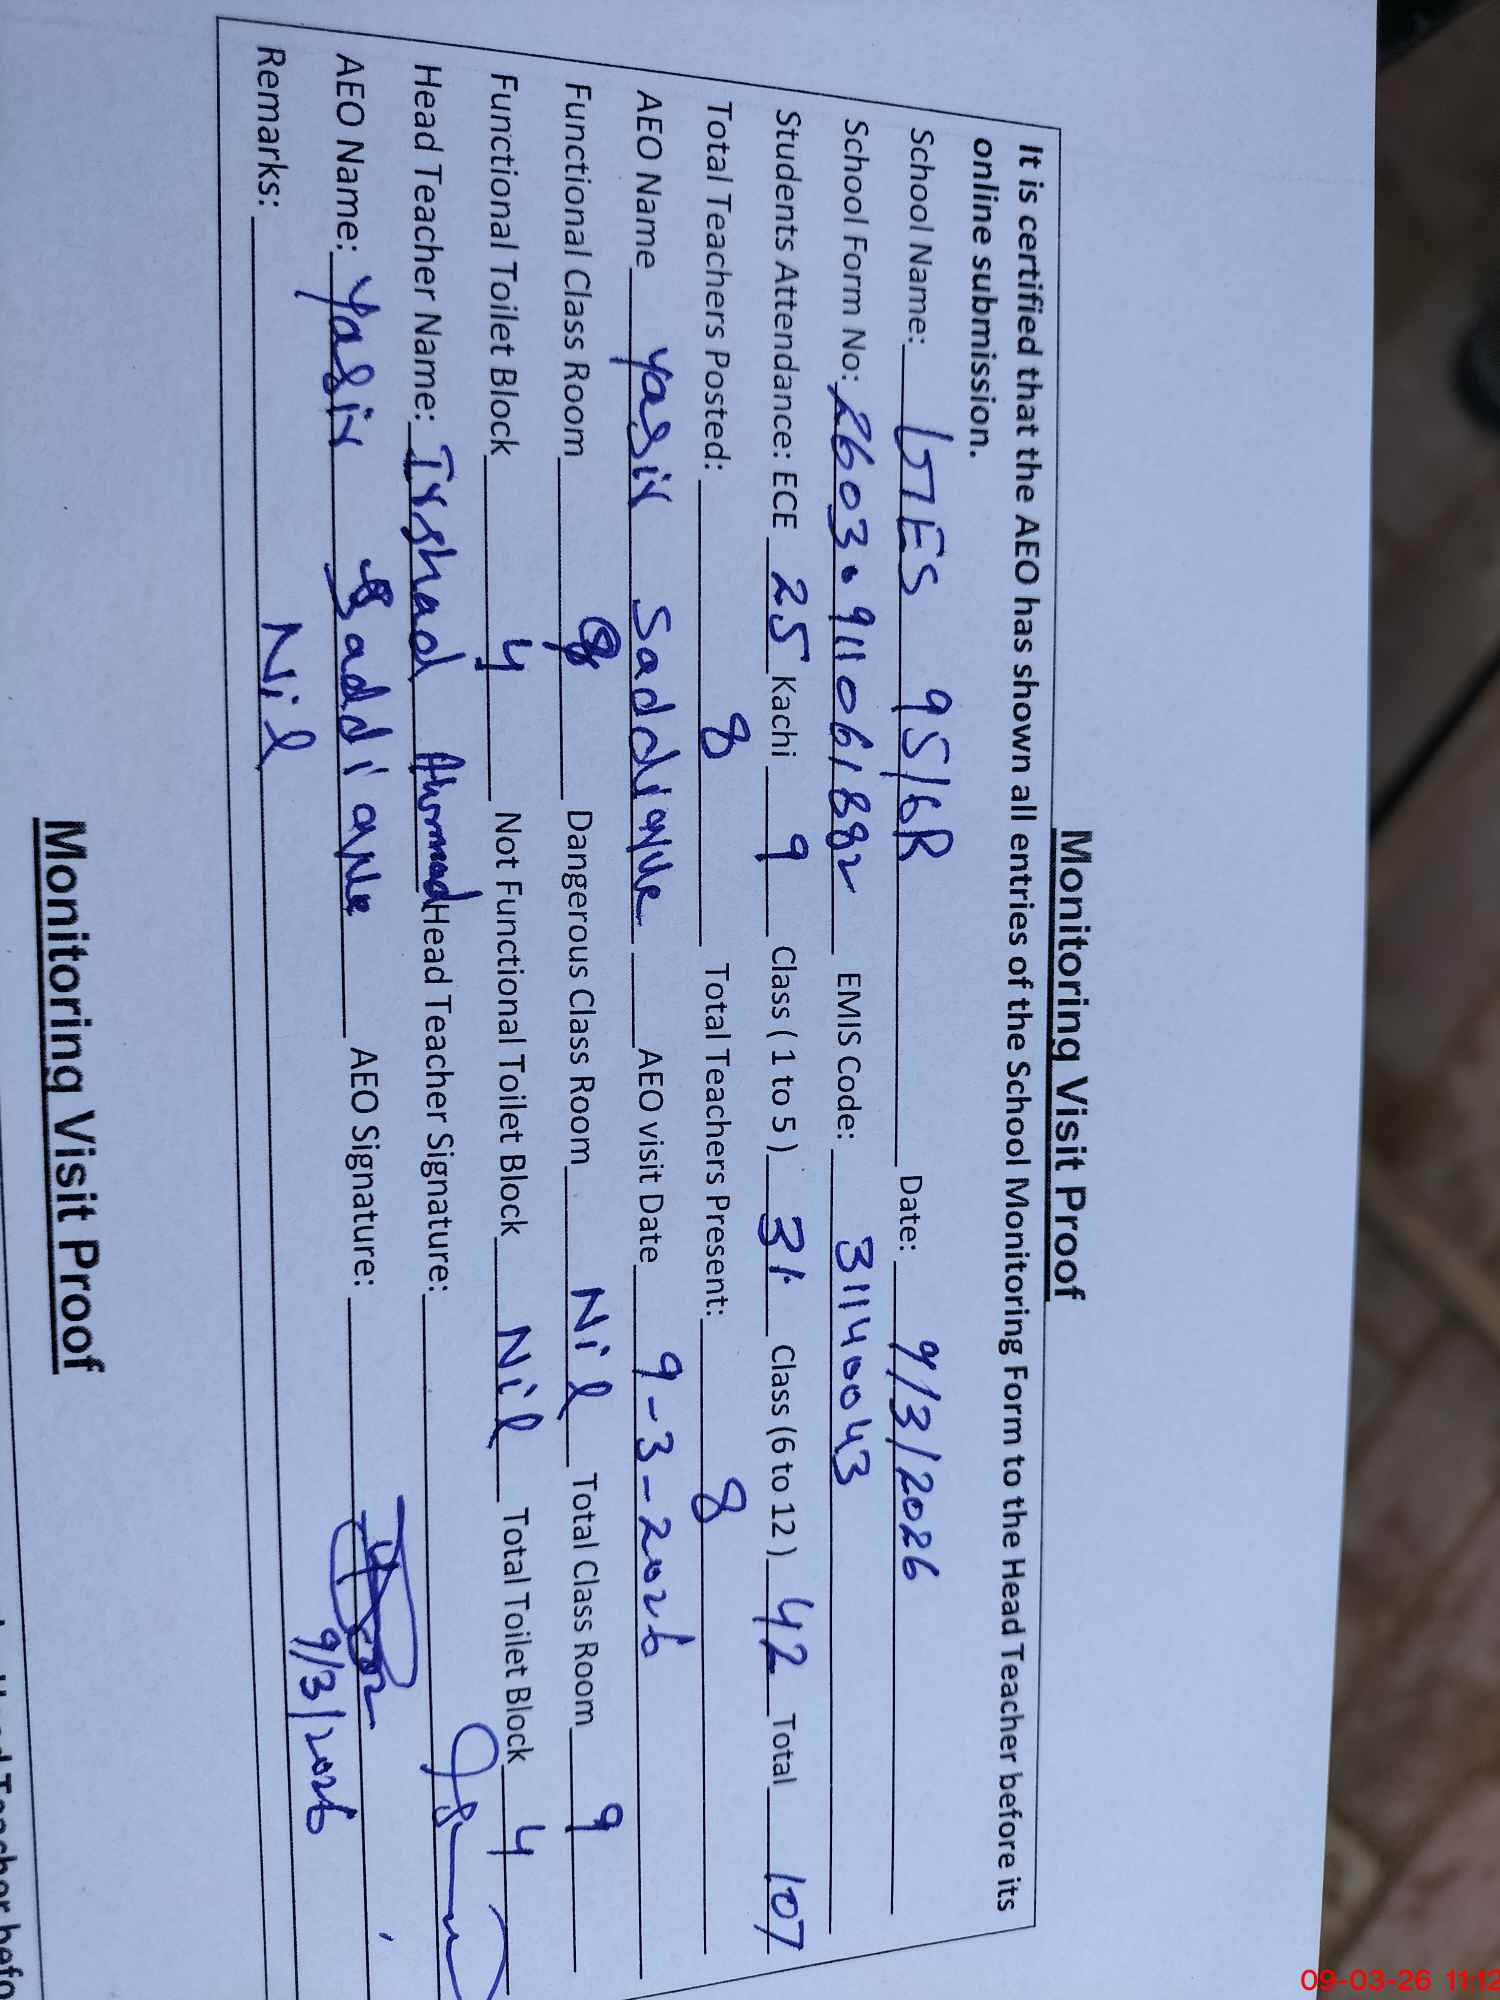 Monitoring Visit Proof
It is certified that the AEO has shown all entries of the School Monitoring Form to the Head Teacher before its
online submission.
School Name: GES 95/6R Date: 9/3/2026
School Form No: 26030911061882 EMIS Code: 31140043
Students Attendance: ECE 25 Kachi 9 Class ( 1 to 5 ) 31 Class (6 to 12 ) 42 Total 107
Total Teachers Posted: 8 Total Teachers Present: 8
AEO Name Yasir Saddique AEO visit Date 9-3-2026
Functional Class Room 9 Dangerous Class Room Nil Total Class Room 9
Functional Toilet Block 4 Not Functional Toilet Block Nil Total Toilet Block 4
Head Teacher Name: Irshad Ahmad Head Teacher Signature:
AEO Name: Yasir Saddique AEO Signature:
9/3/2026
Remarks: Nil
Monitoring Visit Proof
09-03-26 11:12